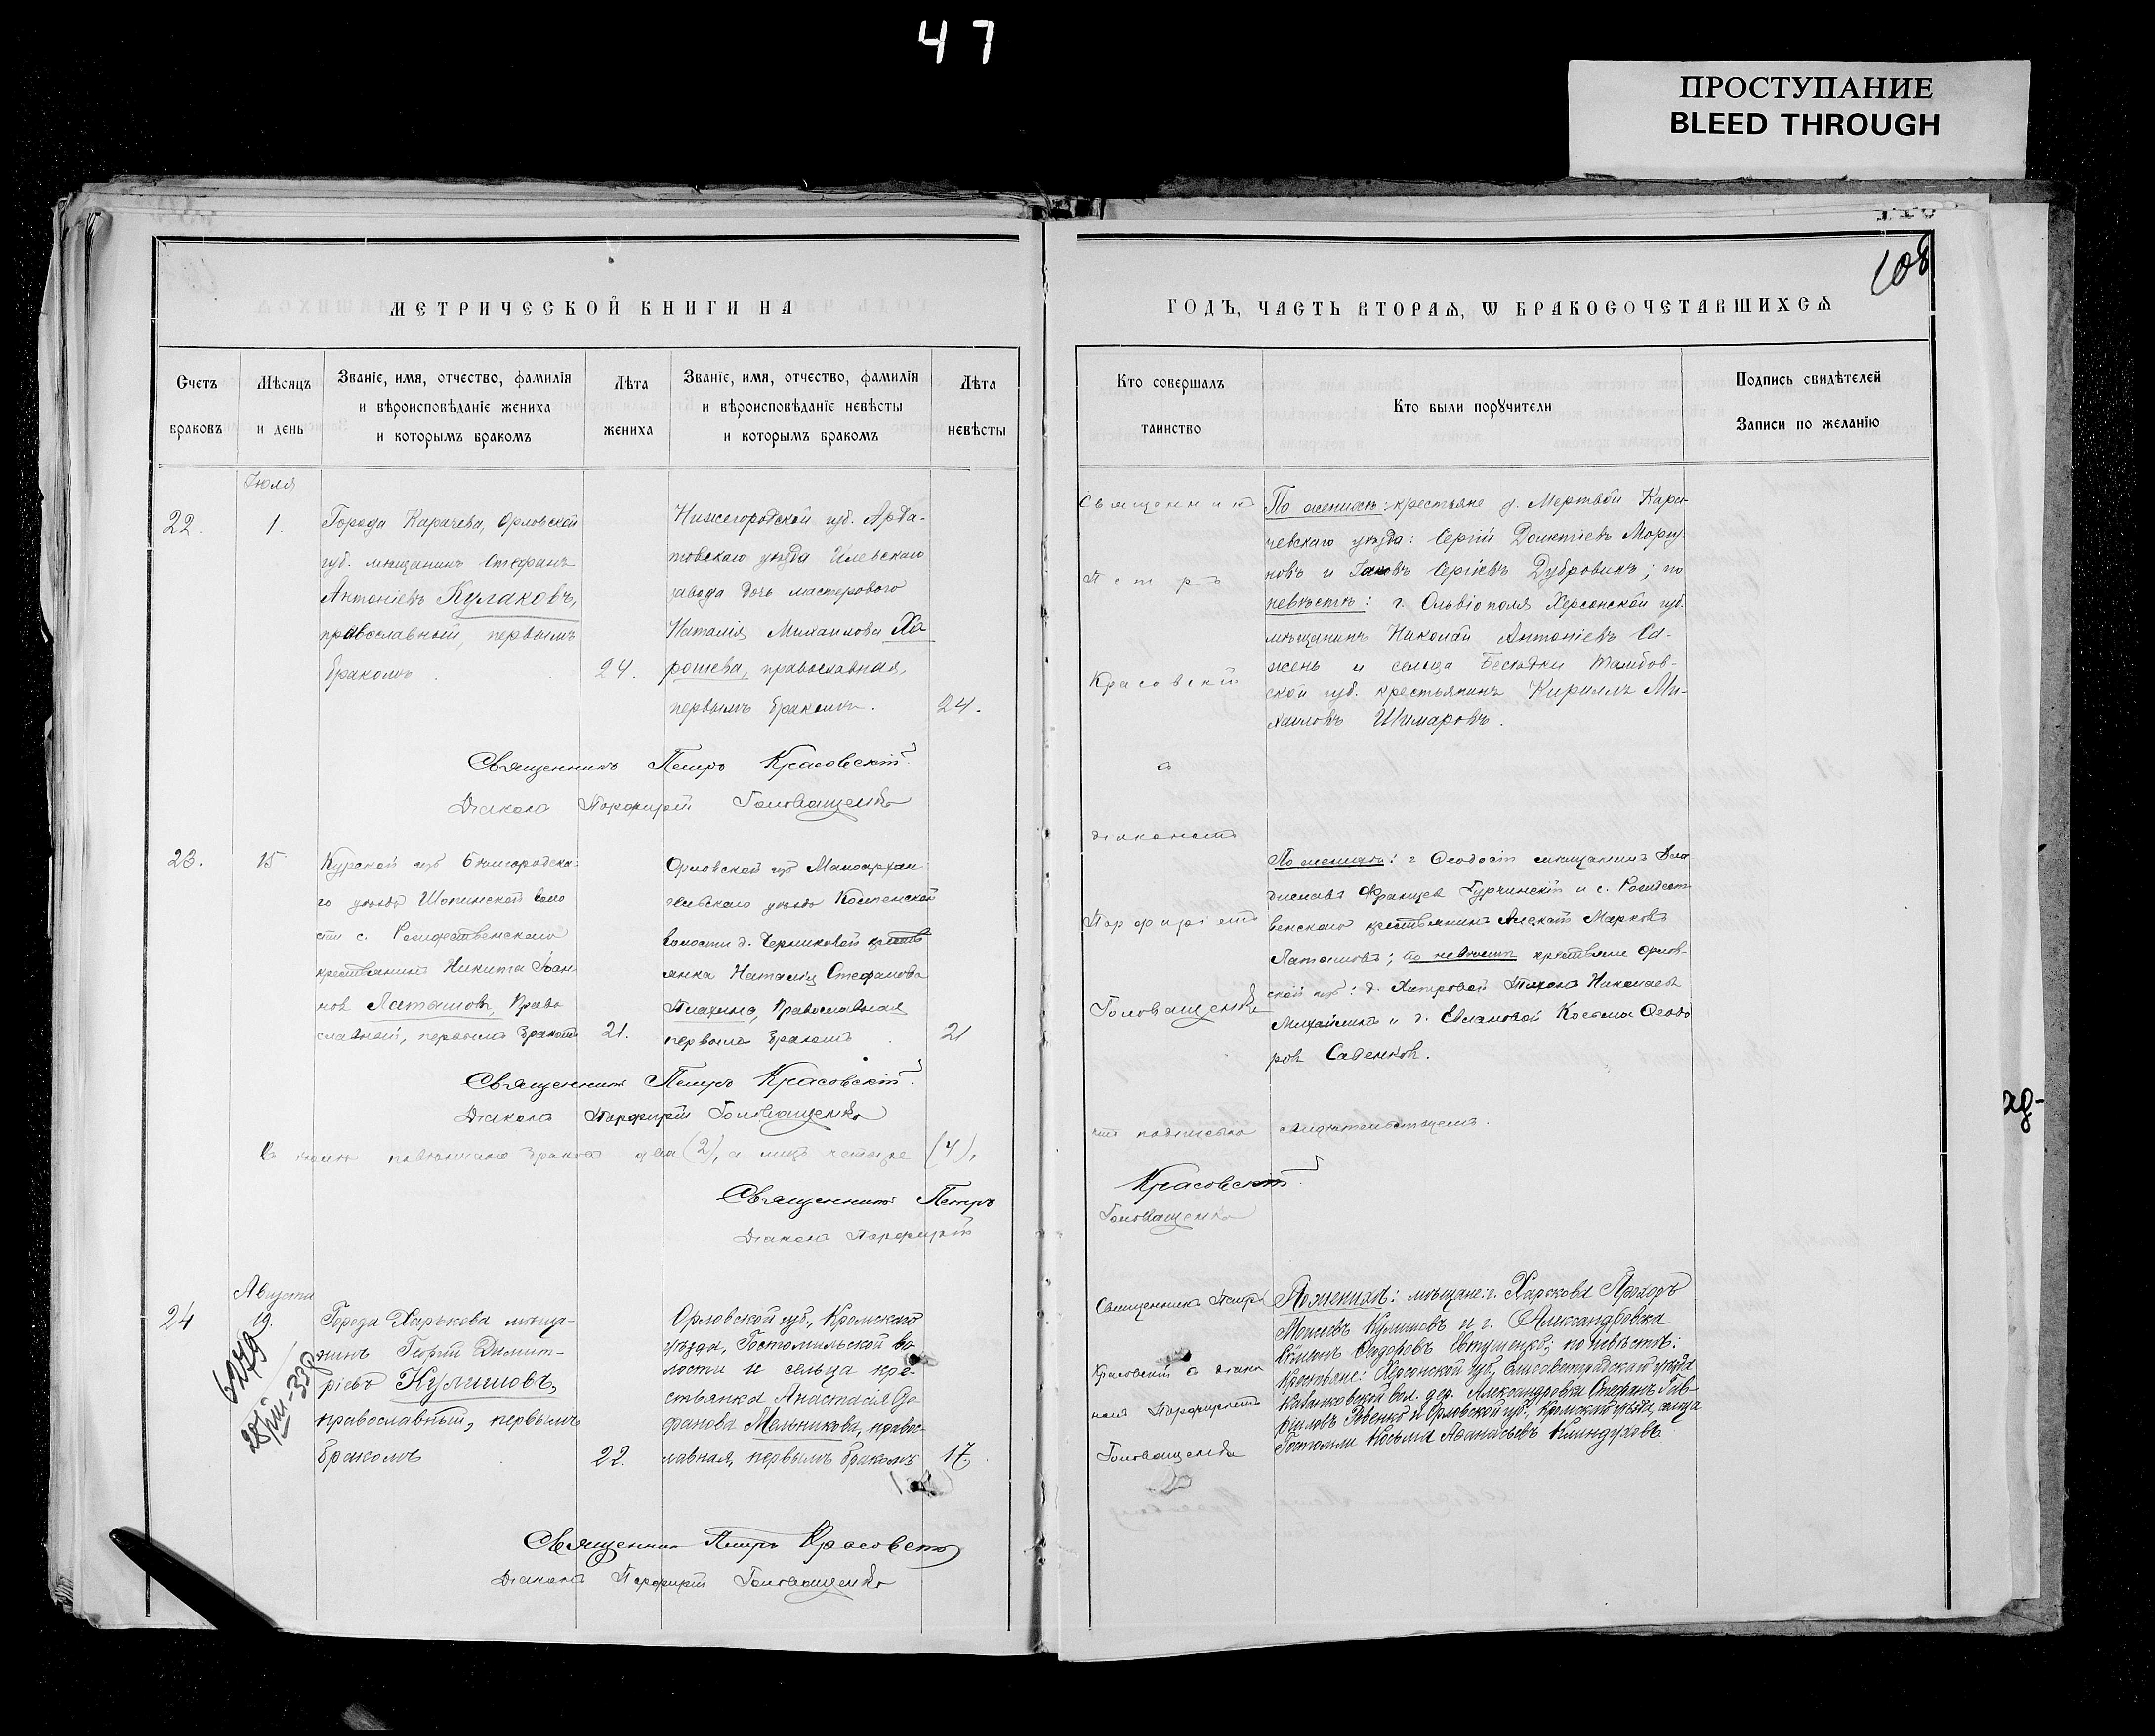 47
ПРОСТУПАНИЕ
BLEED THROUGH
108
МЕТРИЧЕСКОЙ КНИГИ НА
ГОДЪ, ЧАСТЬ ВТОРАЯ, Ѡ БРАКОСОЧЕТАВШИХСЯ
Счетъ браковъ
Мѣсяцъ и день
Званіе, имя, отчество, фамилія
и вѣроисповѣданіе жениха
и которымъ бракомъ
Лѣта жениха
Званіе, имя, отчество, фамилія
и вѣроисповѣданіе невѣсты
и которымъ бракомъ
Лѣта невѣсты
Кто совершалъ
таинство
Кто были порꙋчители
Подпись свидѣтелей
Записи по желанію
Іюля
22.
1.
Города Карачева, Орловской
губ. мѣщанинъ Стефанъ
Антоніевъ Кулаковъ,
православный, первымъ
бракомъ.
24.
Нижегородской губ. Арда-
товскаго уѣзда Илевскаго
завода дочь мастерового
Наталія Михаилова Хо
рошева, православная,
первымъ бракомъ.
24.
Священникъ Петръ Красовскій.
Діаконъ Порфирій Головащенко
Священникъ
Петръ
Красовскій
съ
діакономъ
Порфиріемъ
Головащенко
По женихѣ: крестьяне д. Мертвой Кара-
чевскаго уѣзда: Сергій Моргу-
новъ и Іаковъ Сергіевъ Дубровинъ; по
невѣстѣ: г. Ольвіополя Херсонской губ.
мѣщанинъ Николай Антоніевъ Са-
жень и сельца Бесѣдки Тамбов-
ской губ. крестьянинъ Кириллъ Ми-
хаиловъ Шимаровъ.
23.
15
Курской губ Бѣлгородска-
го уѣзда Шопинской воло
сти с. Рождественскаго
крестьянинъ Никита Іоан
новъ Латышовъ, Право
славный, первымъ бракомъ
21.
Орловской губ Малоархан
гельскаго уѣзда
волости д. крестья
янка Наталія Стефанова
православная
первымъ бракомъ
21
По женихѣ: г Ѳеодосіи мѣщанинъ Вла
диславъ Францев и с. Рождест
венскаго крестьянинъ Алексѣй Марковъ
Латышовъ; по невѣстѣ крестьяне Орлов-
ской губ: д. Тихонъ Николаевъ
Михайлинъ и д. Косьма Ѳеодо
ровъ Савенковъ.
Священникъ Петръ Красовскій.
Діаконъ Порфирій Головащенко
Въ іюлѣ повѣнчано браковъ два (2), а лицъ четыре (4),
что подписью свидѣтельствуемъ.
Священникъ Петръ Красовскій.
Діаконъ Порфирій Головащенко
Августа
24
19.
6279
28/VIII-33р
Города Харькова мѣща-
нинъ Георгій Димит-
ріевъ Кулишовъ,
православный, первымъ
бракомъ
22.
Орловской губ., Кромскаго
уѣзда, Гостомльской во-
лости и сельца кре-
стьянка Анастасія Ѳе
офанова Мельникова, правос-
лавная, первымъ бракомъ
17.
Священникъ Петръ
Красовскій съ діако
номъ Порфиріемъ
Головащенко
По женихѣ: мѣщане: г. Харькова Прохоръ
Моисеевъ Кулишовъ и г. Александровка
Сидоровъ Евтушенко; по невѣстѣ:
крестьяне: Херсонской губ., Елисаветградскаго уѣзда
вол. дер. Александровки Стефанъ Гав-
ріиловъ Ревенко и Орловской губ., Кромскаго уѣзда, сельца
Гостомли Косьма Афанасьевъ Клиндуховъ
Священникъ Петръ Красовскій
Діаконъ Порфирій Головащенко